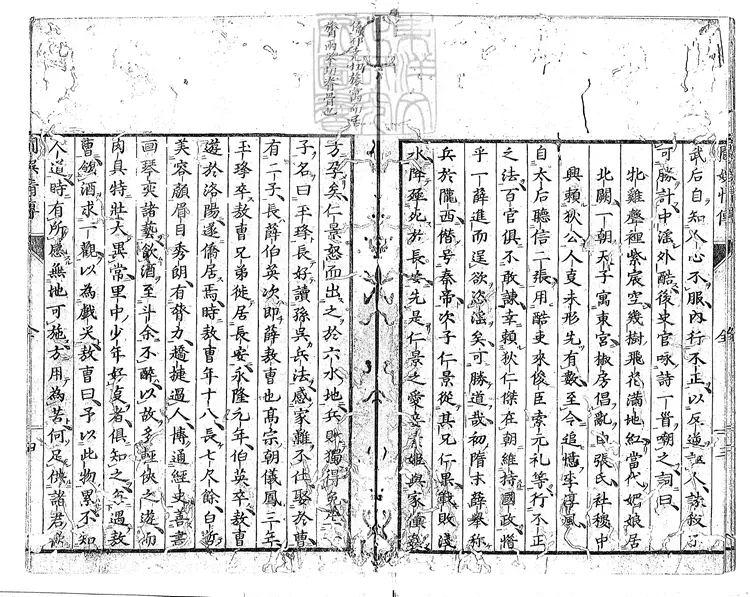 武后自知人心不服內行不正以反逆誣人誅殺不
可勝計中滛外酷後史官咏詩一首嘲之詞曰
牝雞聲裡紫宸空幾樹飛花滿地紅當代媚娘居
北闕一朝天子寓東宮椒房倡亂由張氏社稷中
興賴狄公人支未形先有數至今追憶李淳風
自太后聽信二張用酷吏來俊臣索元礼等行不正
之法百官俱不敢諫幸賴狄仁傑在朝維持國政將
乎一薛進而逞欲恣滛矣可勝道哉初隋末薛舉称
兵於隴西僭号秦帝次子仁景從其兄仁杲戰敗淺
水陣殫死於長安先是仁景之愛妾素姬與家僮姦
方孕矣仁景怒而出之於六水地兵败獨得免生一
子名曰玉琫長好讀孫吳兵法感家難不仕娶於曹
有二子長薛伯英次即薛敖曹也高宗朝儀鳳三年
玉琫卒敖曹兄弟徙居長安永隆元年伯英卒敖曹
遊於洛陽遂僑居焉時敖曹年十八長七尺餘白皙
美容顏眉目秀朗有膂力趫捷過人博通經史善書
画琴奕諸藝飲酒至斗余不醉以故多輕俠之遊而
肉具特壯大異常里中少年好事者俱知之每遇敖
曹飲酒求一觀以為戲笑敖曹曰予以此物累不知
人道時有所感無地可施方用為苦何足供諸君